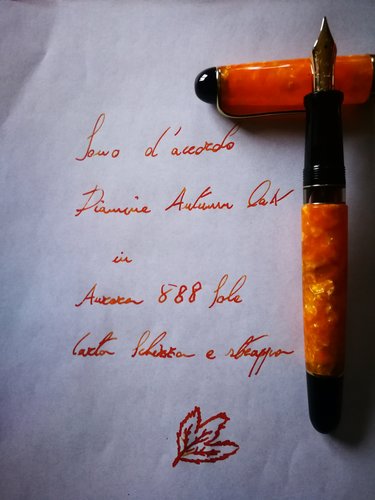 Sono d'accordo
Diamine Autumn Oak
in
Aurora 888 Sole
Carta Schizza e strappa